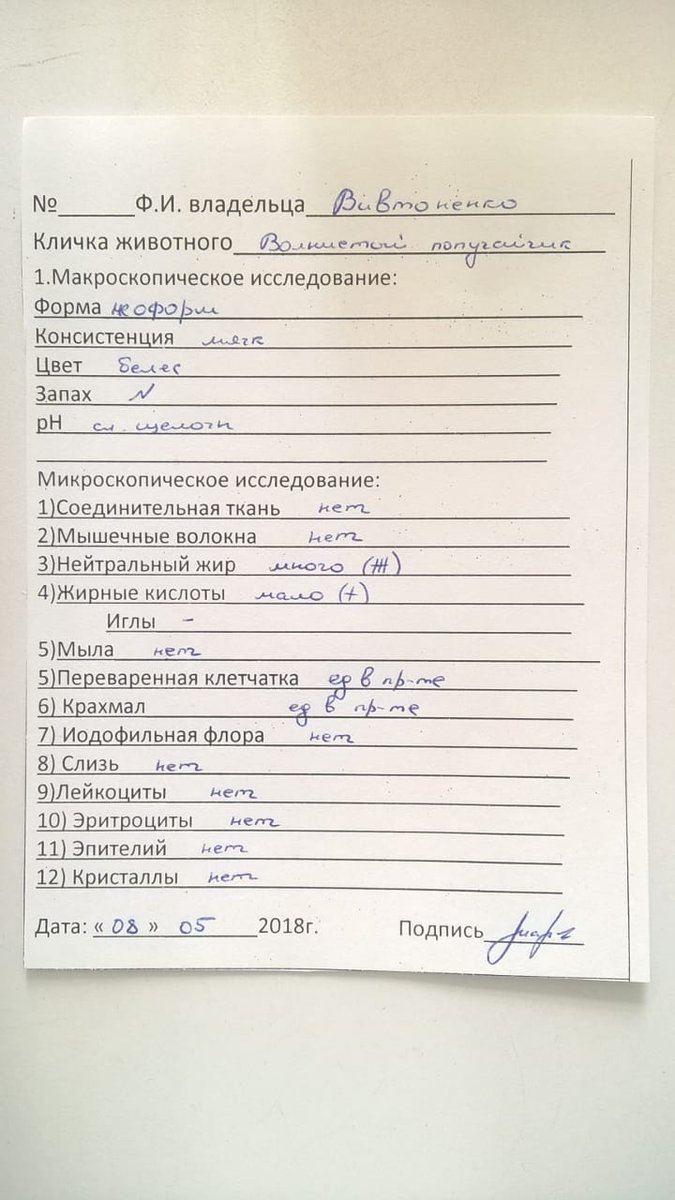 №______Ф.И. владельца Вивтоненко
Кличка животного Волнистый попугайчик
1.Макроскопическое исследование:
Форма неоформ
Консистенция мягк
Цвет белес
Запах N
pH сл. щелочн
Микроскопическое исследование:
1)Соединительная ткань нет
2)Мышечные волокна нет
3)Нейтральный жир много (+++)
4)Жирные кислоты мало (+)
Иглы -
5)Мыла нет
5)Переваренная клетчатка ед в пр-те
6) Крахмал ед в пр-те
7) Иодофильная флора нет
8) Слизь нет
9)Лейкоциты нет
10) Эритроциты нет
11) Эпителий нет
12) Кристаллы нет
Дата: « 08 » 05 2018г. Подпись